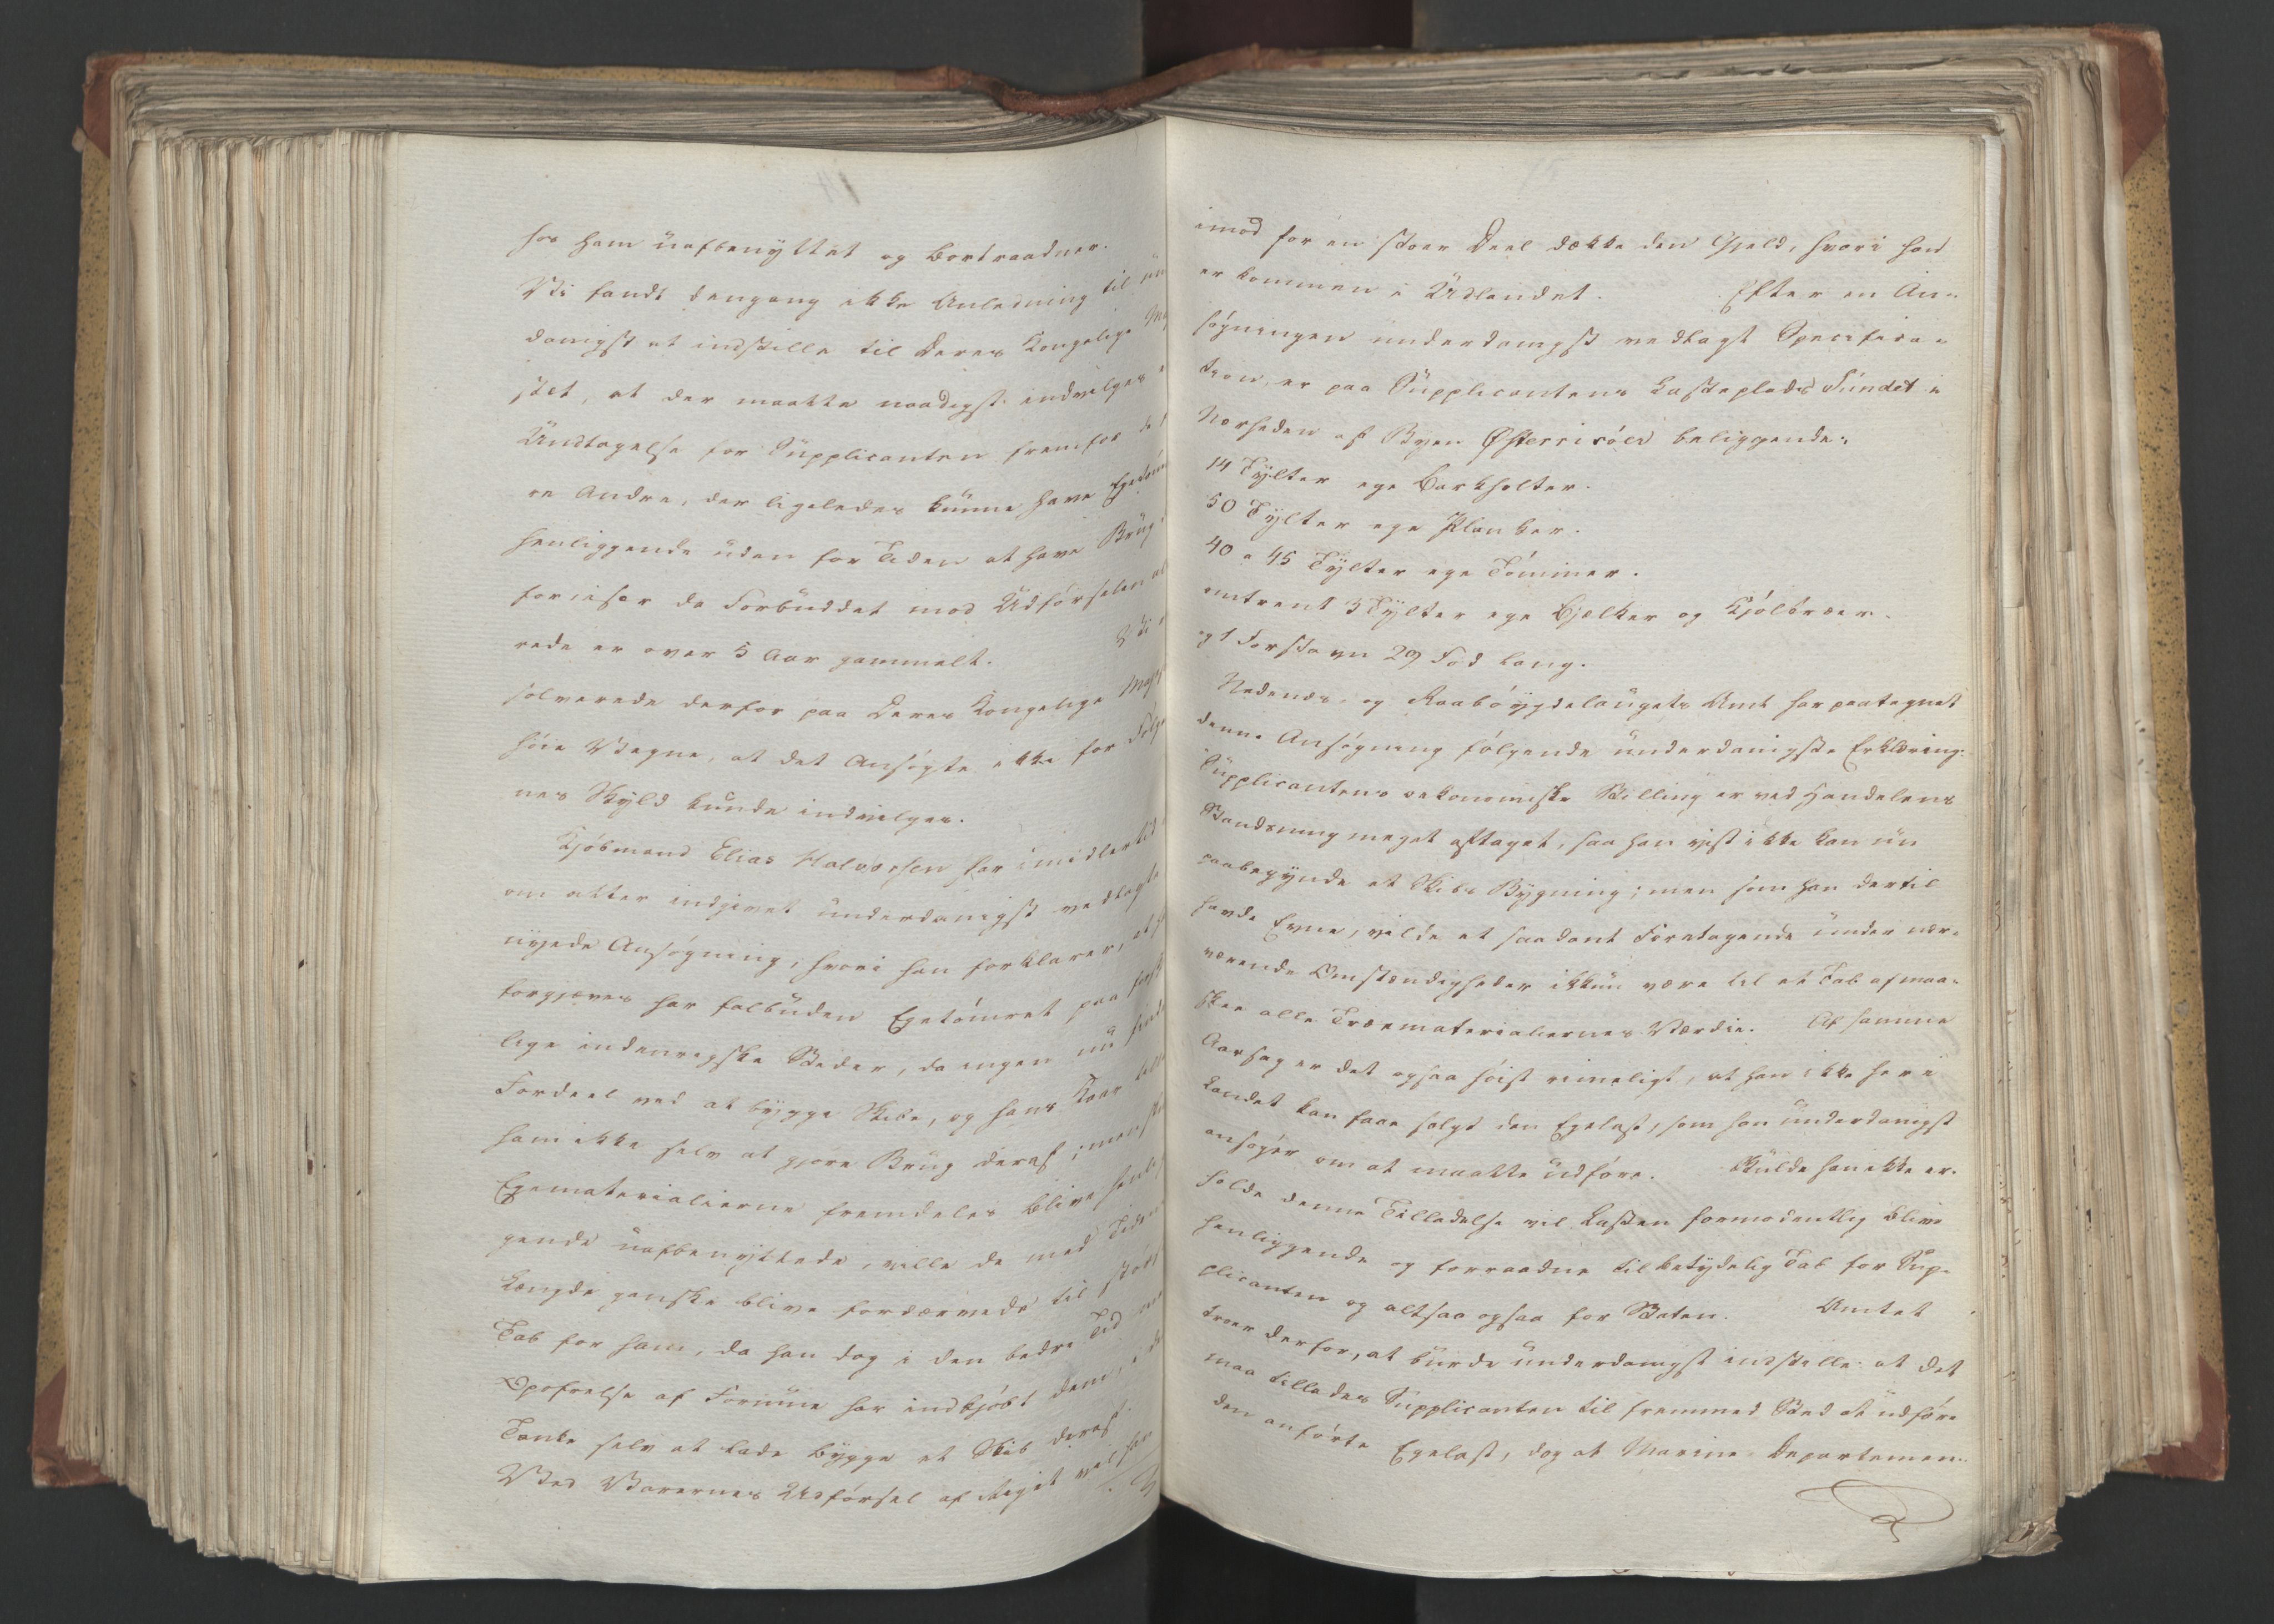 hos ham uafbenyttet og bortraadner.
Vi fandt dengang ikke Anledning til un
danigst at indstille til Deres Kongelige Ma
stet, at der maatte naadigst indvilges
Undtagelse for Supplicanten fremfor
re Andre, der ligeledes kunne have Egetøm
henliggende uden for Tiden at have Brug
foruiser da Forbuddet mod Udførselen al
rede er over 5 Aar gammelt. Vi
solverede derfor paa Deres Kongelige Maj
høie Vegne, at det Ansøgte ikke for Følge
nes Skyld kunde indvilges.
Kjøbmand Elias Halvorsen har imidlertid
om atter indgivet underdanigst vedlagte
nyede Ansøgning, hvori han forklarer, at h
forgjæves har falbuden Egetømret paa fors
lige indenrigske Steder, da ingen nu finde
Fordeel ved at bygge Skibe, og hans Kaar till
ham ikke selv at gjøre Brug deraf; men sk
Egematerialierne fremdeles blive henlig
gende uafbenyttede, ville de med Tiden
Længde ganske blive fordærvede til stor
Tab for ham, da han dog i den bedre Tid
Opofrelse af Formue har indkjøbt dem, i d
Tanke selv at lade bygge et Skib deraf.
Ved Varernes Udførsel af Riget vil han
imod for en stoer Deel dække den Gjeld, hvori han
er kommen i Udlandet. Efter en An-
søgningen underdanigst vedlagt Specifica-
tion, er paa Supplicantens Lasteplads Sundet i
Nærheden af Byen Østerrisøer beliggende:
14 Tylter ege Barkholter.
50 Tylter ege Planker.
40 a 45 Tylter ege Tømmer.
omtrent 3 Tylter ege Bjelker og Kjølbræer.
og 1 Forstavn 29 Fod lang.
Nedenæs og Raabøygdelaugets Amt har paategnet
denne Ansøgning følgende underdanigste Erklæring:
Supplicantens oekonomiske Stilling er ved Handelens
Standsning meget aftaget, saa han vist ikke kan nu
paabegynde et Skibs Bygning; men som han dertil
havde Evne, vilde et saadant Foretagende under nær-
værende Omstændigheder ikkun være til et Tab af maa-
skee alle Træmaterialiernes Værdie. Af samme
Aarsag er det ogsaa høist rimeligt, at han ikke her i
Landet kan faae solgt den Egelast, som han underdanigst
ansøger om at maatte udføre. Skulde han ikke er-
holde denne Tilladelse vil Lasten formodentlig blive
henliggende og forraadne til betydelig Tab for Sup-
plicanten og altsaa ogsaa for Staten. Amtet
troer derfor, at burde underdanigst indstille: at det
maa tillades Supplicanten til fremmed Sted at udføre
den anførte Egelast, dog at Marine-Departemen-